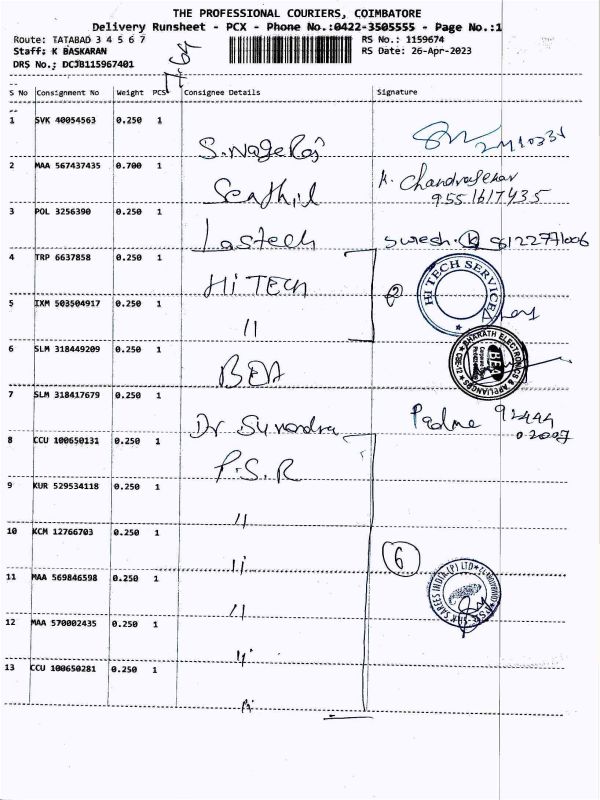 THE PROFESSIONAL COURIERS, COIMBATORE
Delivery Runsheet - PCX - Phone No.:0422-3505555 - Page No.:1
Route: TATABAD 3 4 5 6 7
RS No.: 1159674
Staff: K BASKARAN
RS Date: 26-Apr-2023
DRS No.: DCJB115967401
S No Consignment No Weight PCS Consignee Details Signature
1 SVK 40054563 0.250 1
2 MAA 567437435 0.700 1
Senthil K. Chandrasekar
9551617435
3 POL 3256390 0.250 1
Lastech Suresh.
4 TRP 6637858 0.250 1
Hi TECH 2 HI TECH SERVICE
5 IXM 503504917 0.250 1
"
6 SLM 318449209 0.250 1
BEA BHARATH ELECTRONICS & APPLIANCES
BEA
7 SLM 318417679 0.250 1
Dr Surendra Padma
8 CCU 100650131 0.250 1
P.S.R
9 KUR 529534118 0.250 1
"
10 KCM 12766703 0.250 1
" 6
11 MAA 569846598 0.250 1
"
12 MAA 570002435 0.250 1
"
13 CCU 100650281 0.250 1
"